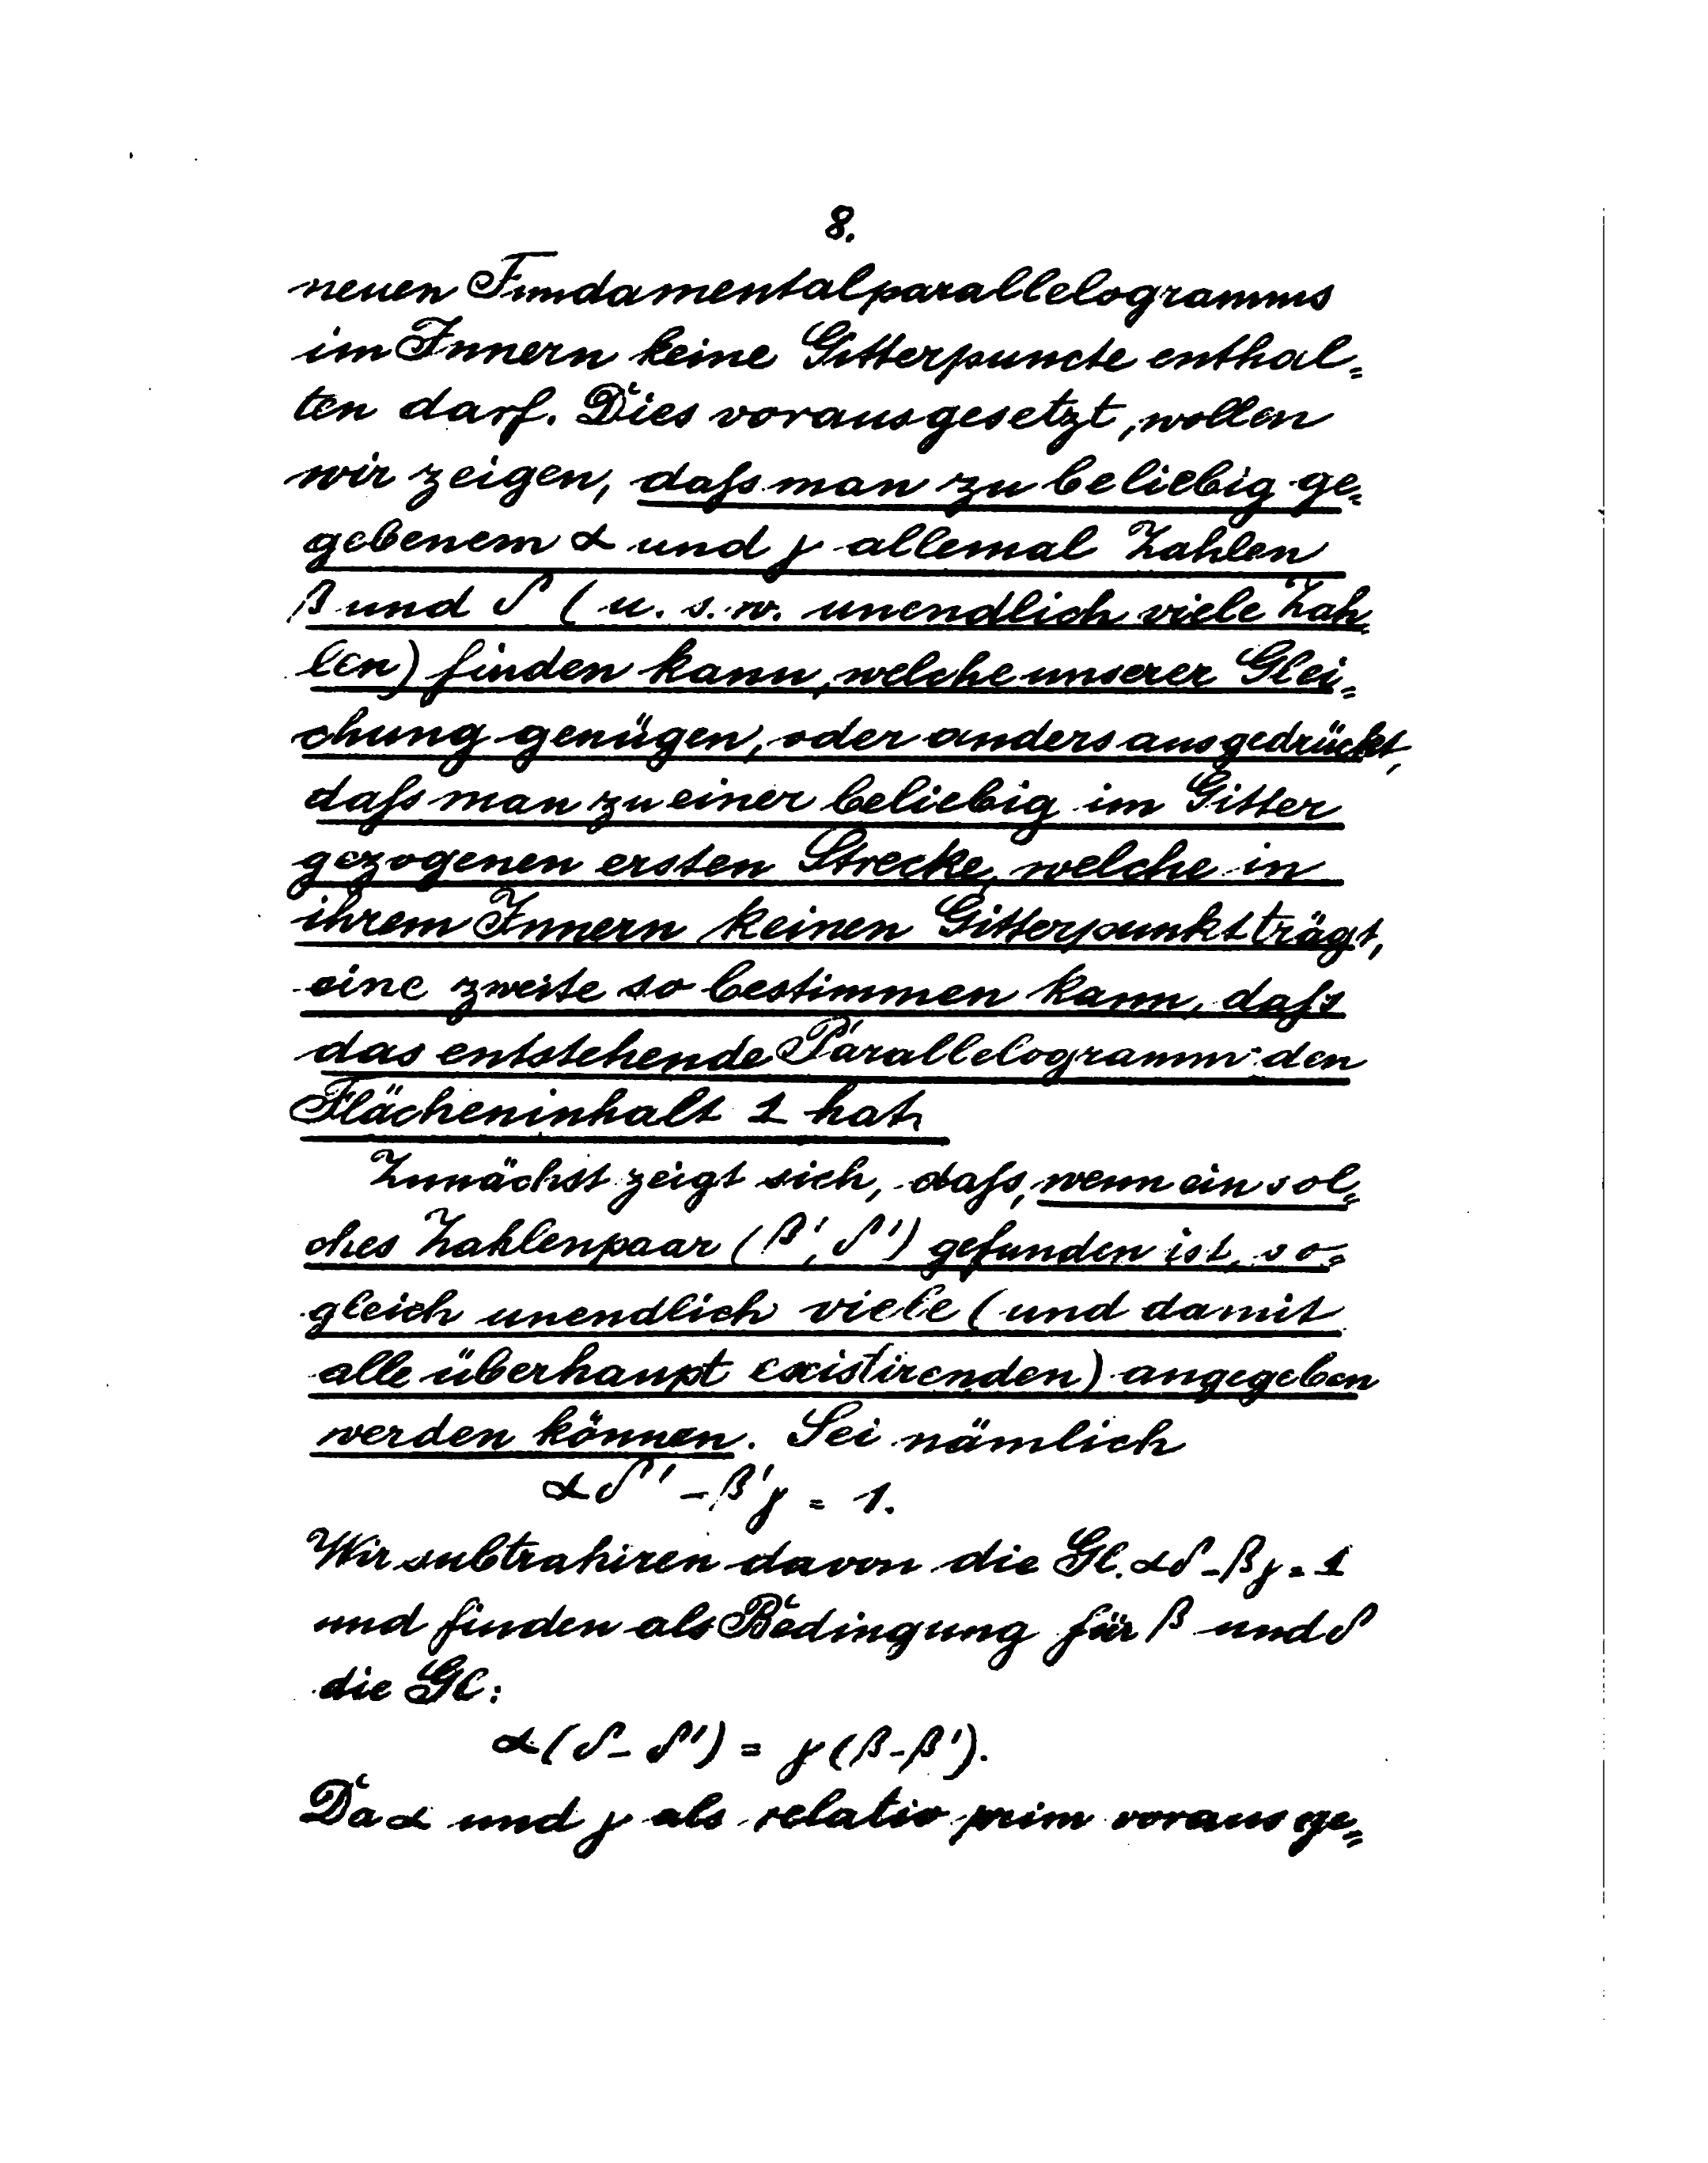 8.
neuen Fundamentalparallelogramms
im Innern keine Gitterpuncte enthal=
ten darf. Dies vorausgesetzt, wollen
wir zeigen, daſs man zu beliebig ge=
gebenem α und γ allemal Zahlen
β und δ (u. s. w. unendlich viele Zah
len) finden kann, welche unserer Glei=
chung genügen, oder anders ausgedrückt,
daſs man zu einer beliebig im Gitter
gezogenen ersten Strecke, welche in
ihrem Innern keinen Gitterpunkt trägt,
eine zweite so bestimmen kann, daſs
das entstehende Parallelogramm den
Flächeninhalt 1 hat.
Zunächst zeigt sich, daſs, wenn ein sol=
ches Zahlenpaar (β', δ') gefunden ist, so=
gleich unendlich viele (und damit
alle überhaupt existirenden) angegeben
werden können. Sei nämlich
αδ' - β'γ = 1.
Wir subtrahiren davon die Gl. αδ - βγ = 1
und finden als Bedingung für β und δ
die Gl:
α(δ - δ') = γ(β - β').
Da α und γ als relativ prim vorausge=